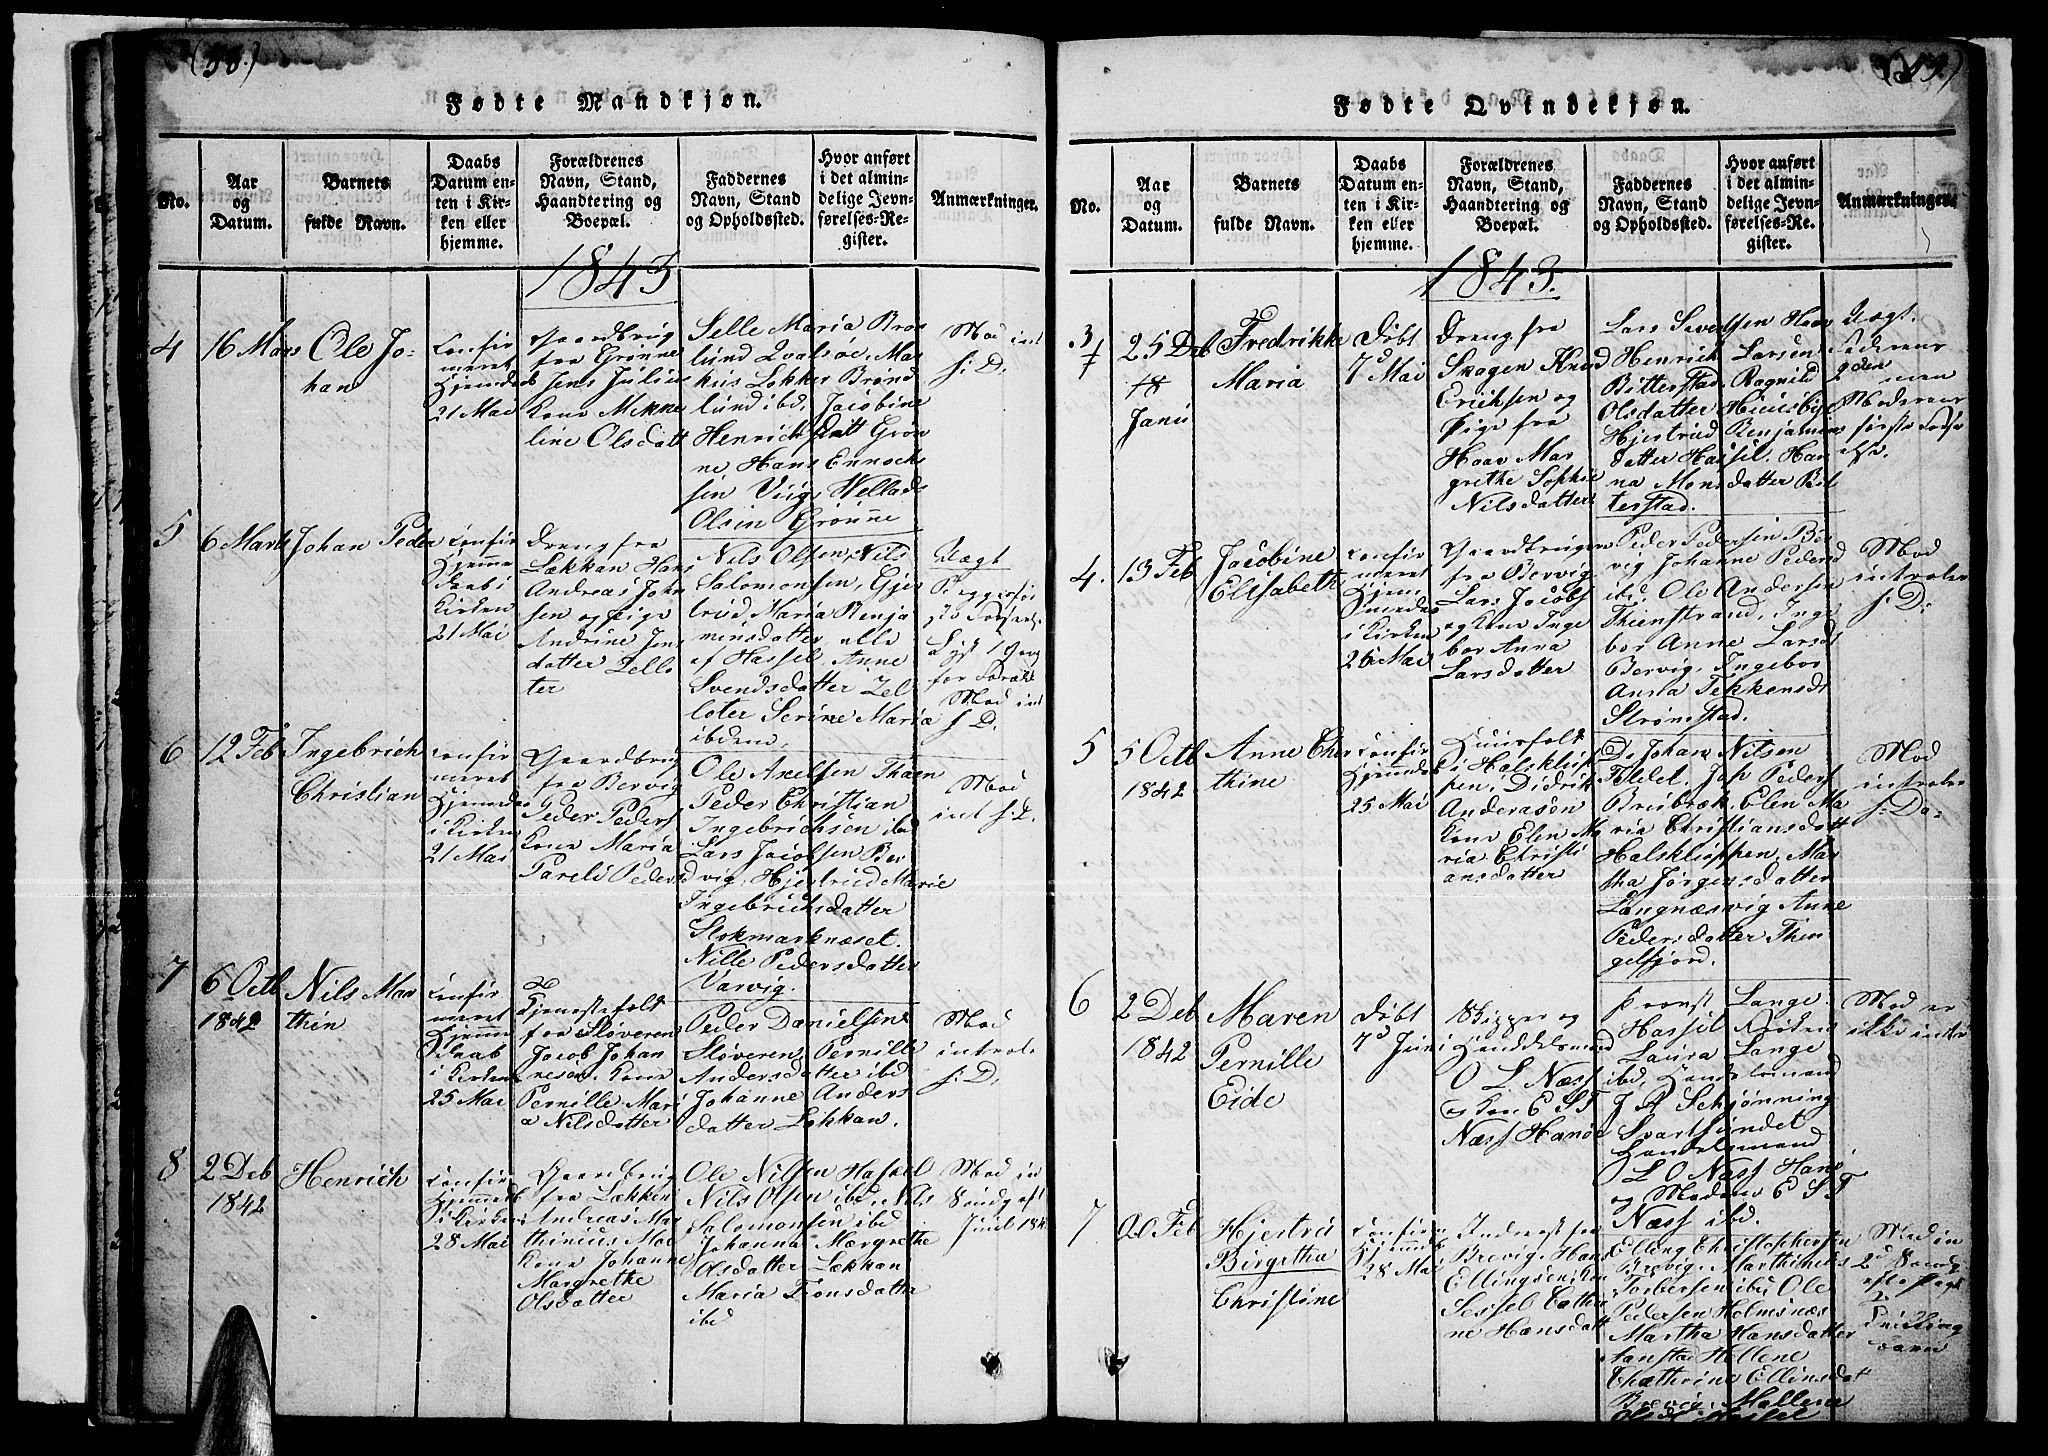 (58.)
Fødte Mandkjøn.
No.
Aar
og
Datum.
Barnets
fulde Navn.
Daabs
Datum en-
ten i Kir-
ken eller
hjemme.
Forældrenes
Navn, Stand,
Haandtering og
Boepæl.
Faddernes
Navn, Stand
og Opholdssted.
Hvor anført
i det almin-
delige Jevn-
førelses-Re-
gister.
Anmærkninger.
1843
4
16 Mars
Ole Jo-
han
Confir
meret
Hjemdøb
21 Mai
Gaardbrug
fra Grønne
Jens Julius
Kone Mekne
line Olsdatt
Selle Maria Bros
lund Qvalsøe, Mar
kus Lokker Brønd
lund ibd, Jacobine
Henrichsdatt Grøn
ne Hans Ennoch
sen Viig, Wellads
Olsen Grønne
Mod int
s: D.
5
6 Marts
Johan Peder
Confir
Hjemme
daab i
Kirken
21 Mai
Dreng fra
Løkkan Hans
Andreas John
sen og Pige
Andrine Jens
datter Zello
ter
Nils Olsen, Nils
Salomonsen, Gje
trud Maria Benja
minsdatter, alle
af Hassel, Anne
Svendsdatter Zel
loter Serine Maria
ibdem.
Uægt
Mod int
s: D.
6
12 Feb
Ingebrich
Christian
Confir
meret
Hjemdøb
i Kirken
21 Mai
Gaardbrug
fra Bervig
Peder Peders
Kone Maria
Pareli Pedersd
Ole Axelsen Thoen
Peder Christian
Ingebrichsen ibd
Lars Jacobsen Ber
vig, Hjertrud Marie
Ingebrichsdatter
Slokmarknæset.
Nille Pedersdatter
Varvig.
Mod
int s: D.
7
6 Octb
1842
Nils Mar
thin
Confir
meret
Hjemme
daab
i Kirken
25 Mai
Tjenestefolk
fra Sløveren
Jacob Johan
nesen. Kone
Pernille Mari
a Nilsdatter
Peder Danielsen
Sløveren Pernille
Andersdatter ibd
Johanne Anders
datter Løkkan.
Mod
introl:
s: D.
8
2 Deb
1842
Henrich
Confir
Hjemmed
i Kirken
28 Mai
Gaardbrug
fra Løkken
Andreas Mar
thinius
Kone Johanne
Margrethe
Olsdatter
Ole Nilsen Hassel
Nils Olsen ibd, Nils
Salomonsen ibd
Johanna Margrethe
Olsdatter Løkkan
Maria Tionsdatter
ibd
Mod in
Søndg eft
Juul 184
(59.)
Fødte Qvindekjøn.
No.
Aar
og
Datum.
Barnets
fulde Navn.
Daabs
Datum en-
ten i Kir-
ken eller
hjemme.
Forældrenes
Navn, Stand,
Haandtering og
Boepæl.
Faddernes
Navn, Stand
og Opholdssted.
Hvor anført
i det almin-
delige Jevn-
førelses-Re-
gister.
Anmærkninger.
1843.
3
25 Deb
18
Janu
Fredrikke
Maria
Døbt
7 Mai
Dreng fra
Skogen Knud
Eriksen og
Pige fra
Haav Mar
grethe Sophie
Nilsdatter
Lars Sivertsen Haav
Henrich Larsen
Bitterstad, Ragnild
Olsdatter
Hjertrud Benjamins
datter Hassel. Han
na Monsdatter Bit
terstad.
Uægt.
Faderens
men
Moderens
første
4.
13 Feb
Jacobine
Elisabeth
Confir
meret
Hjem
i Kirken
26 Mai
Gaardbruger
fra Bervig
Lars Jacobs
og Kone Inge
bor Anna
Larsdatter
Peder Pedersen Ber
vig Johanne Pedersd
ibd, Ole Andersen
Thienstrand, Inge
bor Anne Larsdt
Bervig, Ingebor
Anna Tekkensdt
Strømstad.
Mod
introler
s: D:
5
5 Octb
1842
Anne Cha
thine
Confir
Hjemmdøb
25 Mai
Huusfolk
i Halsklop
pen, Didrik
Anderasen
Kone Elen Ma
ria Christi
ansdatter
Johan Nilsen
Feldet, Joh Peders
Breibræk, Elen Ma
ria Christiansdatt
Halskløppen, Mar
tha Jørgensdatter
Langnæsvig Anne
Pedersdatter Thin
gelfjord.
Mod
introler
s: Da-
6
2 Deb
1842
Maren
Pernille
Eide
Døbt
7d Juni
Skipper og
Handdelsmand
O L Næss
og Kone E S T
Næss Hanøe
Provst Lange
Hassel
Laura Lange
ibd, Handelsmand
J A Schjønning
Svartsundet
Handelsmand
O L Næss Hanø
og Madam E S T
Næss ibd.
Mod er
ikke intro
7
20 Feb
Hjestru
Birgitha
Christine
Confir
Hjemd
28 Mai
Inderst fra
Brevig. Hans
Ellingsen Kone
Sessel Cathri
ne Hansdatt
Elling Christophersen
Brevig. Marthinus
Torbersen ibd Ole
Pedersen Holmsnæs
Martha Hansdatter
Aanstad Hellene
Chathrine Ellinsdat
Brevig, Mallena
Hassel
Mod in
2d Søndg
efter Paas
Tvilling
barn